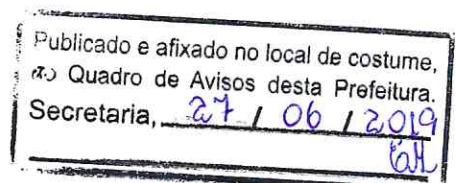 Publicado e afixado no local de costume,
no Quadro de Avisos desta Prefeitura.
Secretaria, 27 / 06 / 2019